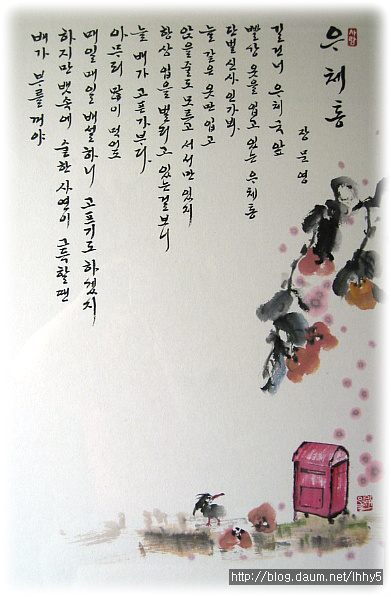 사랑
우체통
장문영
길건너 우체국 앞
빨간 옷을 입고 있는 우체통
단벌 신사인가봐.
늘 같은 옷만 입고
앉을줄도 모르고 서서만 있지
항상 입을 벌리고 있는걸 보니
늘 배가 고픈가부다.
아무리 많이 먹어도
매일 매일 배설하니 고프기도 하겠지
하지만 뱃속에 숱한 사연이 그득할땐
배가 부를꺼야
http://blog.daum.net/lhhy5